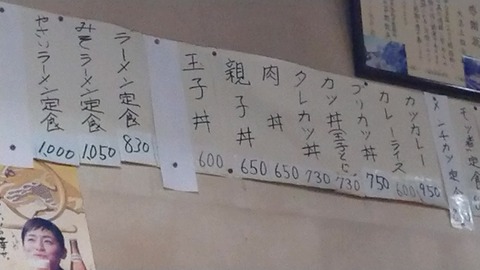 モツ煮定食
メンチカツ定食
カツカレー
950
カレーライス
600
ブリカツ丼
750
カツ丼(玉子とじ)
730
タレカツ丼
730
肉丼
650
親子丼
650
玉子丼
600
ラーメン定食
830
みそラーメン定食
1,050
やさいラーメン定食
1,000